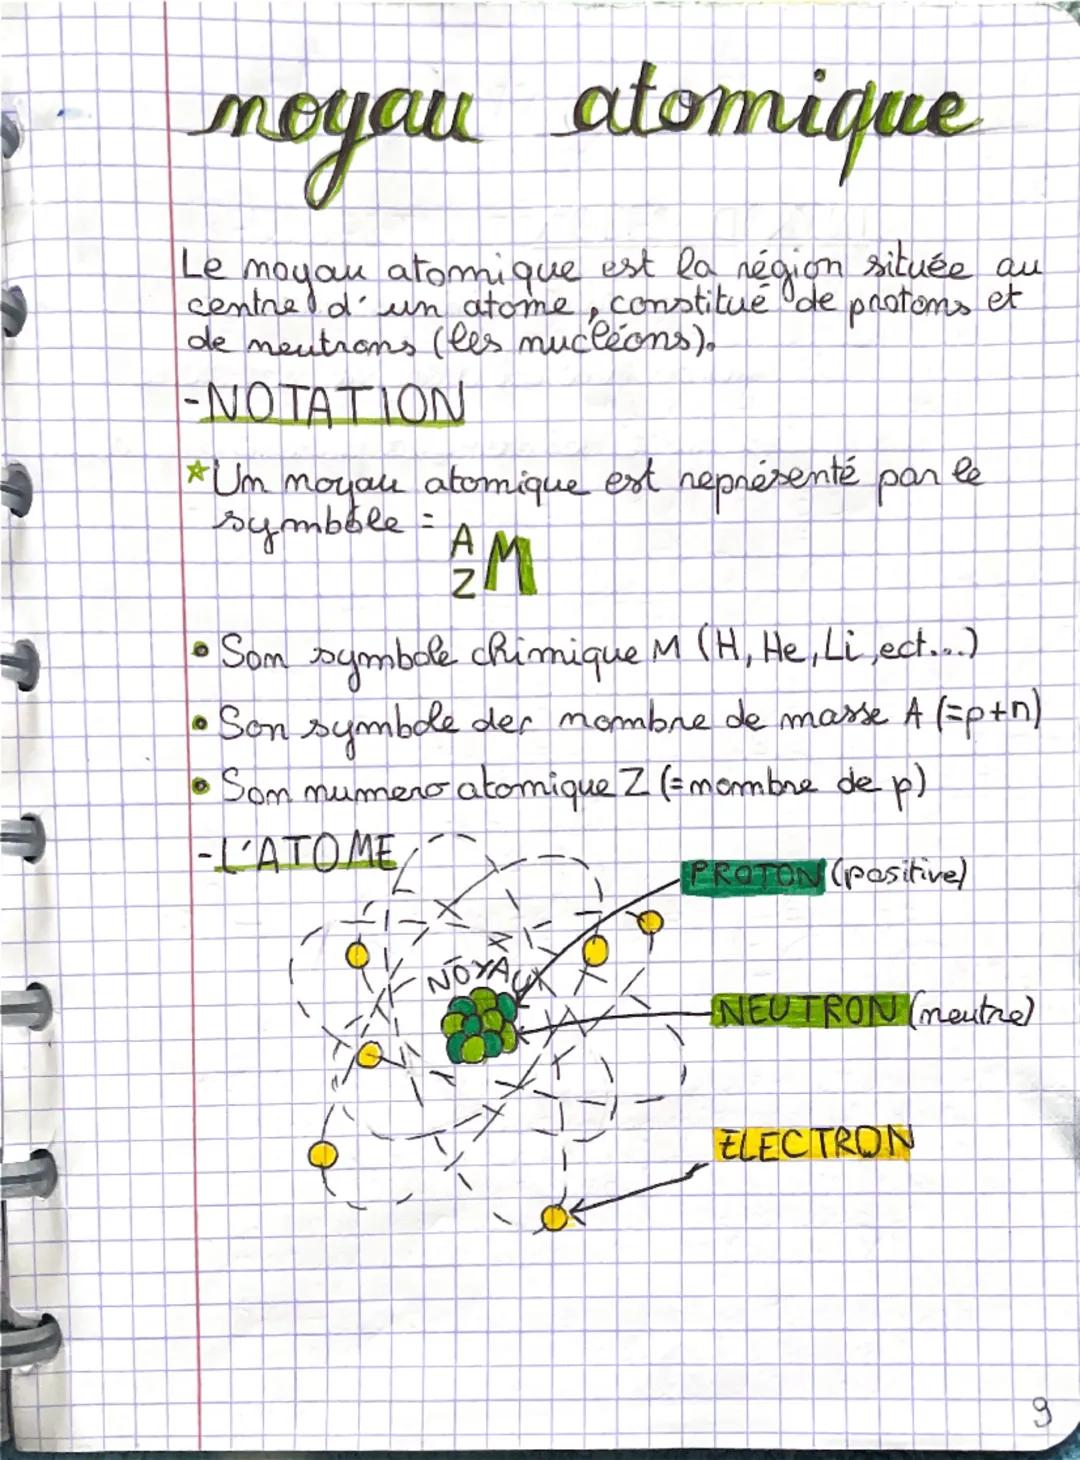 noyau atomique
Le noyau atomique est la région située au
centre d'un atome, constitué de protons et
de neutrons (les nucléons).
-NOTATION
*Un noyau atomique est représenté par le
symbole =
A
Z M
• Son symbole chimique M (H, He, Li, ect...)
• Son symbole der nombre de masse A (=p+n)
• Son numero atomique Z (=nombre de p)
-L'ATOME
PROTON (positive)
NOYAU
NEUTRON (neutre)
ELECTRON
9